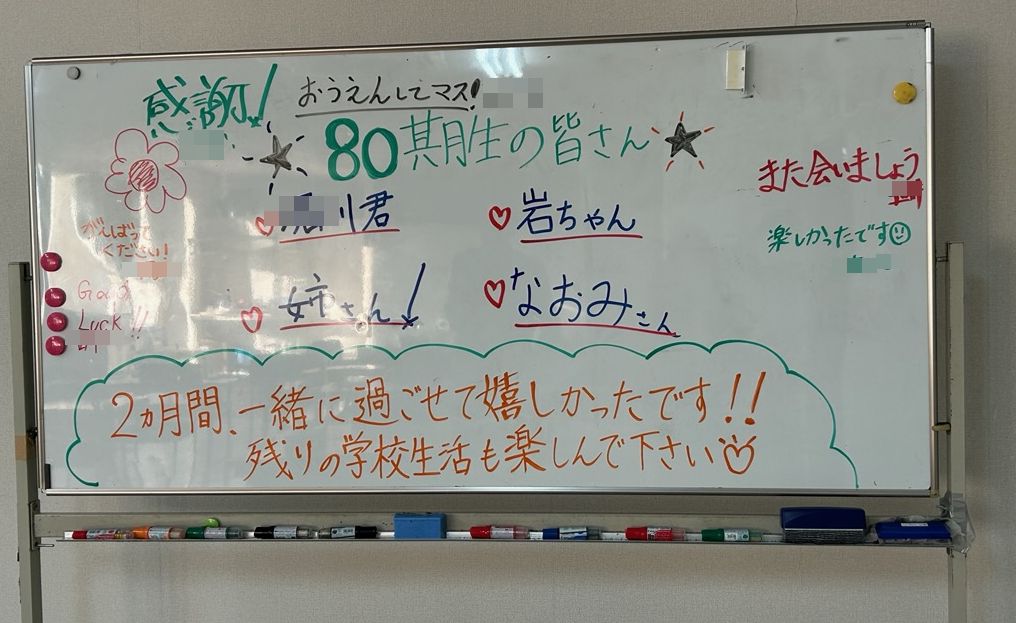 感謝!
おうえんしてマス!
80期生の皆さん
また会いましょう
川君
岩ちゃん
がんばって
ください!
楽しかったです
姉さん!
なおみさん
Good
Luck!!
2ヵ月間、一緒に過ごせて嬉しかったです!!
残りの学校生活も楽しんで下さい